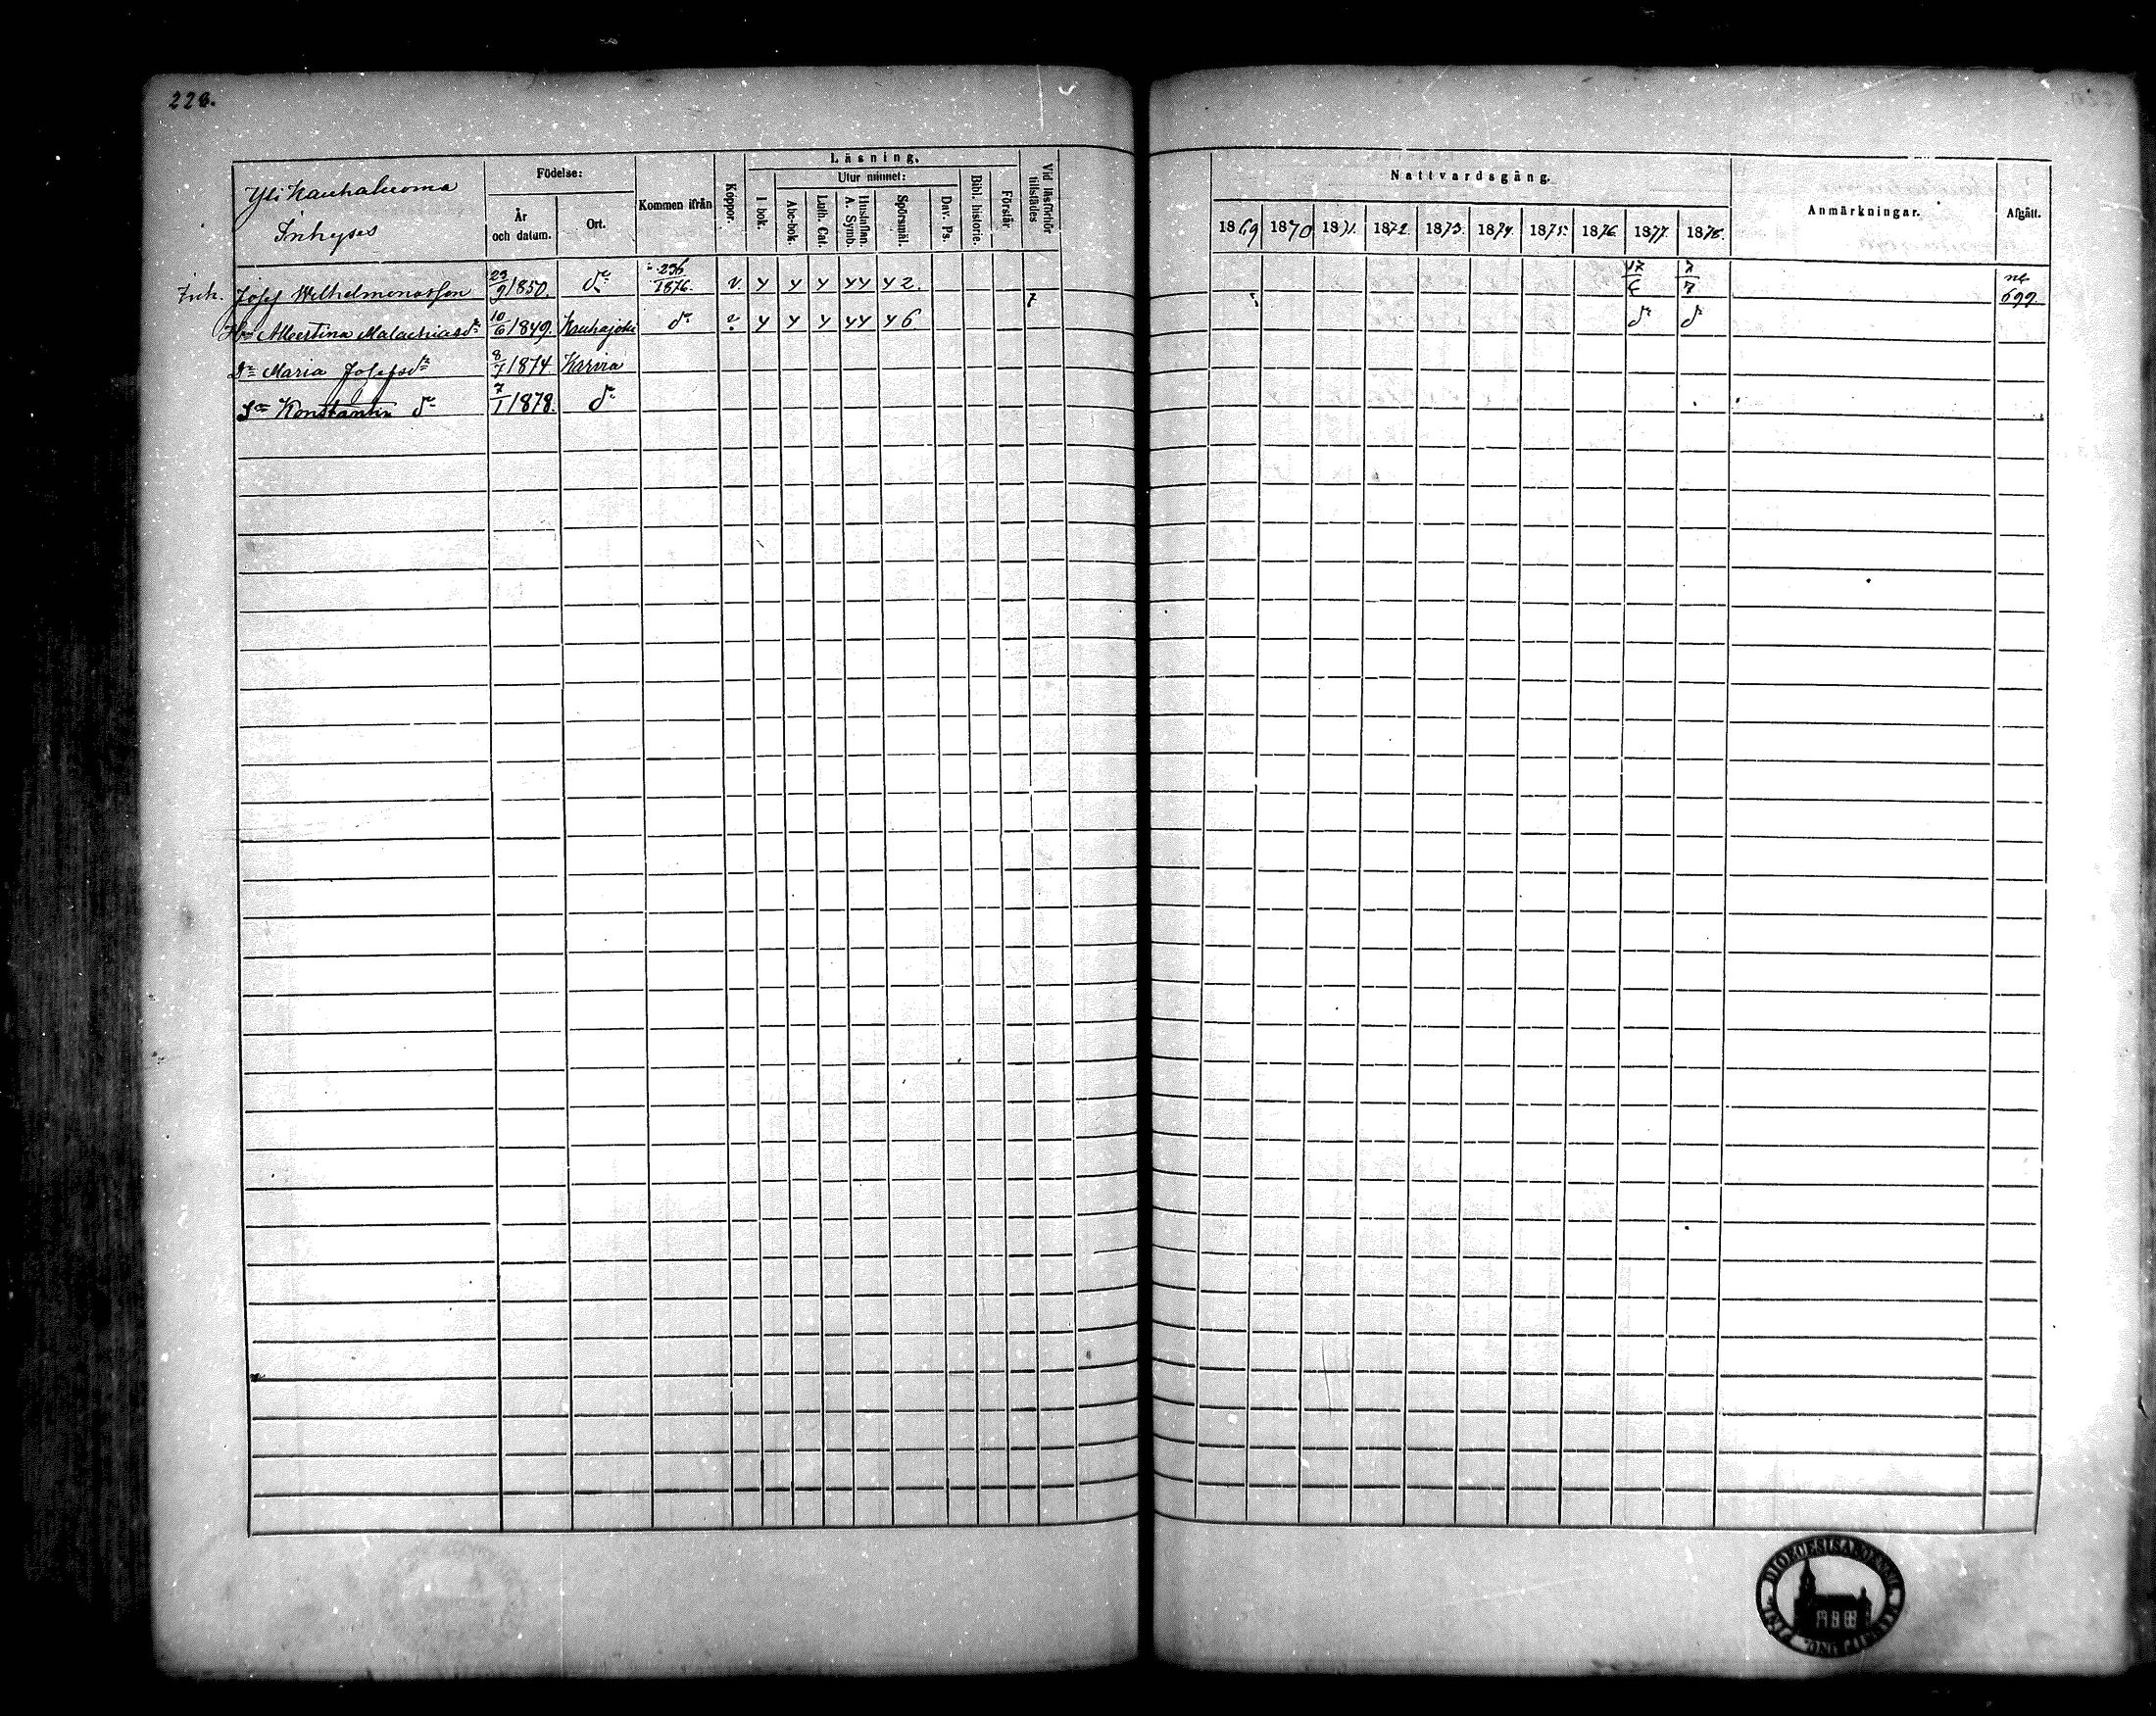 228.
Yli Kauhaluoma
Inhyses
Födelse:
År och datum.
Ort.
Kommen ifrån
Koppor.
Läsning.
I bok.
Utur minnet:
Abc-bok.
Luth. Cat.
Hustaflan. A. Symb.
Spörsmål.
Dav. Ps.
Bibl. historie.
Förstår
Vid läsförhör tillstädes
Nattvardsgång.
1869 1870 1871. 1872. 1873. 1874. 1875. 1876. 1877. 1878.
Anmärkningar.
Afgått.
Inh. Josef Wilhelmonasson 23/9 1850. do 236/1876. v. y y y yy y 2. 7 17/6 7/7 699
Hu Albertina Malachiasdr 10/6 1849. Kauhajoki do v y y y yy y 6 do do
Dr Maria Josefsdr 8/7 1874 Karvia
Sn Konstantin do 7/1 1878. do
DIOECESIS ABOENSIS